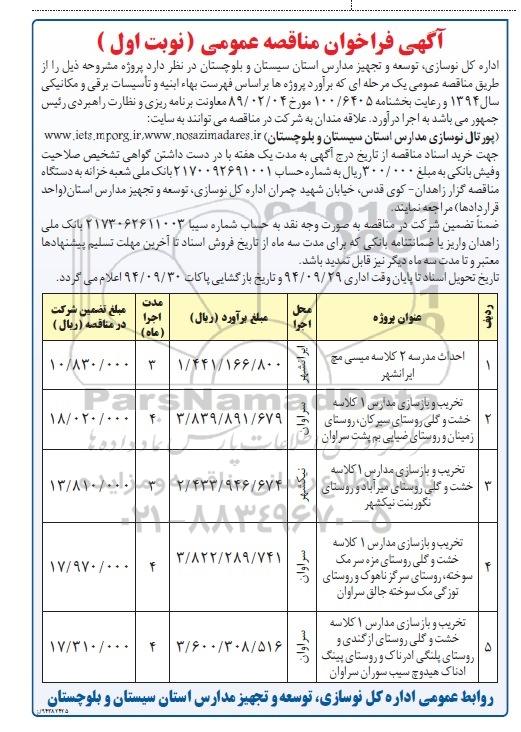 آگهی فراخوان مناقصه عمومی ( نوبت اول )
اداره کل نوسازی، توسعه و تجهیز مدارس استان سیستان و بلوچستان در نظر دارد پروژه مشروحه ذیل را از
طریق مناقصه عمومی یک مرحله ای که برآورد پروژه ها براساس فهرست بهاء ابنیه و تأسیسات برقی و مکانیکی
سال ۱۳۹۴ و رعایت بخشنامه ۱۰۰/۶۴۰۵ مورخ ۸۹/۰۲/۰۴ معاونت برنامه ریزی و نظارت راهبردی رئیس
جمهور می باشد به اجرا درآورد. علاقه مندان به شرکت در مناقصه می توانند به سایت:
(پورتال نوسازی مدارس استان سیستان و بلوچستان) www.iets.mporg.ir,www.nosazimadares.ir
جهت خرید اسناد مناقصه از تاریخ درج آگهی به مدت یک هفته با در دست داشتن گواهی تشخیص صلاحیت
وفیش بانکی به مبلغ ۳۰۰/۰۰۰ ریال به شماره حساب ۲۱۷۰۰۹۲۶۹۱۰۰۱ بانک ملی شعبه خزانه به دستگاه
مناقصه گزار زاهدان- کوی قدس، خیابان شهید چمران اداره کل نوسازی، توسعه و تجهیز مدارس استان(واحد
قراردادها) مراجعه نمایند.
ضمناً تضمین شرکت در مناقصه به صورت وجه نقد به حساب شماره سیبا ۲۱۷۳۰۶۲۶۱۱۰۰۳ بانک ملی
زاهدان واریز یا ضمانتنامه بانکی که برای مدت سه ماه از تاریخ فروش اسناد تا آخرین مهلت تسلیم پیشنهادها
معتبر و تا مدت سه ماه دیگر نیز قابل تمدید باشد.
تاریخ تحویل اسناد تا پایان وقت اداری ۹۴/۰۹/۲۹ و تاریخ بازگشایی پاکات ۹۴/۰۹/۳۰ اعلام می گردد.
ردیف عنوان پروژه محل اجرا مبلغ برآورد (ریال) مدت اجرا (ماه) مبلغ تضمین شرکت در مناقصه (ریال)
۱ احداث مدرسه ۲ کلاسه میسی مچ ایرانشهر ایرانشهر ۱/۴۴۱/۱۶۶/۸۰۰ ۳ ۱۰/۸۳۰/۰۰۰
۲ تخریب و بازسازی مدارس ۱ کلاسه
خشت و گلی روستای سیرکان، روستای
زمینان و روستای ضیایی بم پشت سراوان سراوان ۳/۸۳۹/۸۹۱/۶۷۹ ۴ ۱۸/۰۲۰/۰۰۰
۳ تخریب و بازسازی مدارس ۱ کلاسه
خشت و گلی روستای میرآباد و روستای
نگوربنت نیکشهر نیکشهر ۲/۴۳۳/۹۴۶/۶۷۴ ۳ ۱۳/۸۱۰/۰۰۰
۴ تخریب و بازسازی مدارس ۱ کلاسه
خشت و گلی روستای مزه سر مک
سوخته، روستای سرگز ناهوک و روستای
توزگی مک سوخته جالق سراوان سراوان ۳/۸۲۲/۲۸۹/۷۴۱ ۴ ۱۷/۹۷۰/۰۰۰
۵ تخریب و بازسازی مدارس ۱ کلاسه
خشت و گلی روستای ازگندی و
روستای پلنگی ادرناک و روستای پینگ
ادناک هیدوچ سیب سوران سراوان سراوان ۳/۶۰۰/۳۰۸/۵۱۶ ۴ ۱۷/۳۱۰/۰۰۰
روابط عمومی اداره کل نوسازی، توسعه و تجهیز مدارس استان سیستان و بلوچستان
ParsNamadData
۰۲۱-۸۸۳۴۹۶۷۰-۵